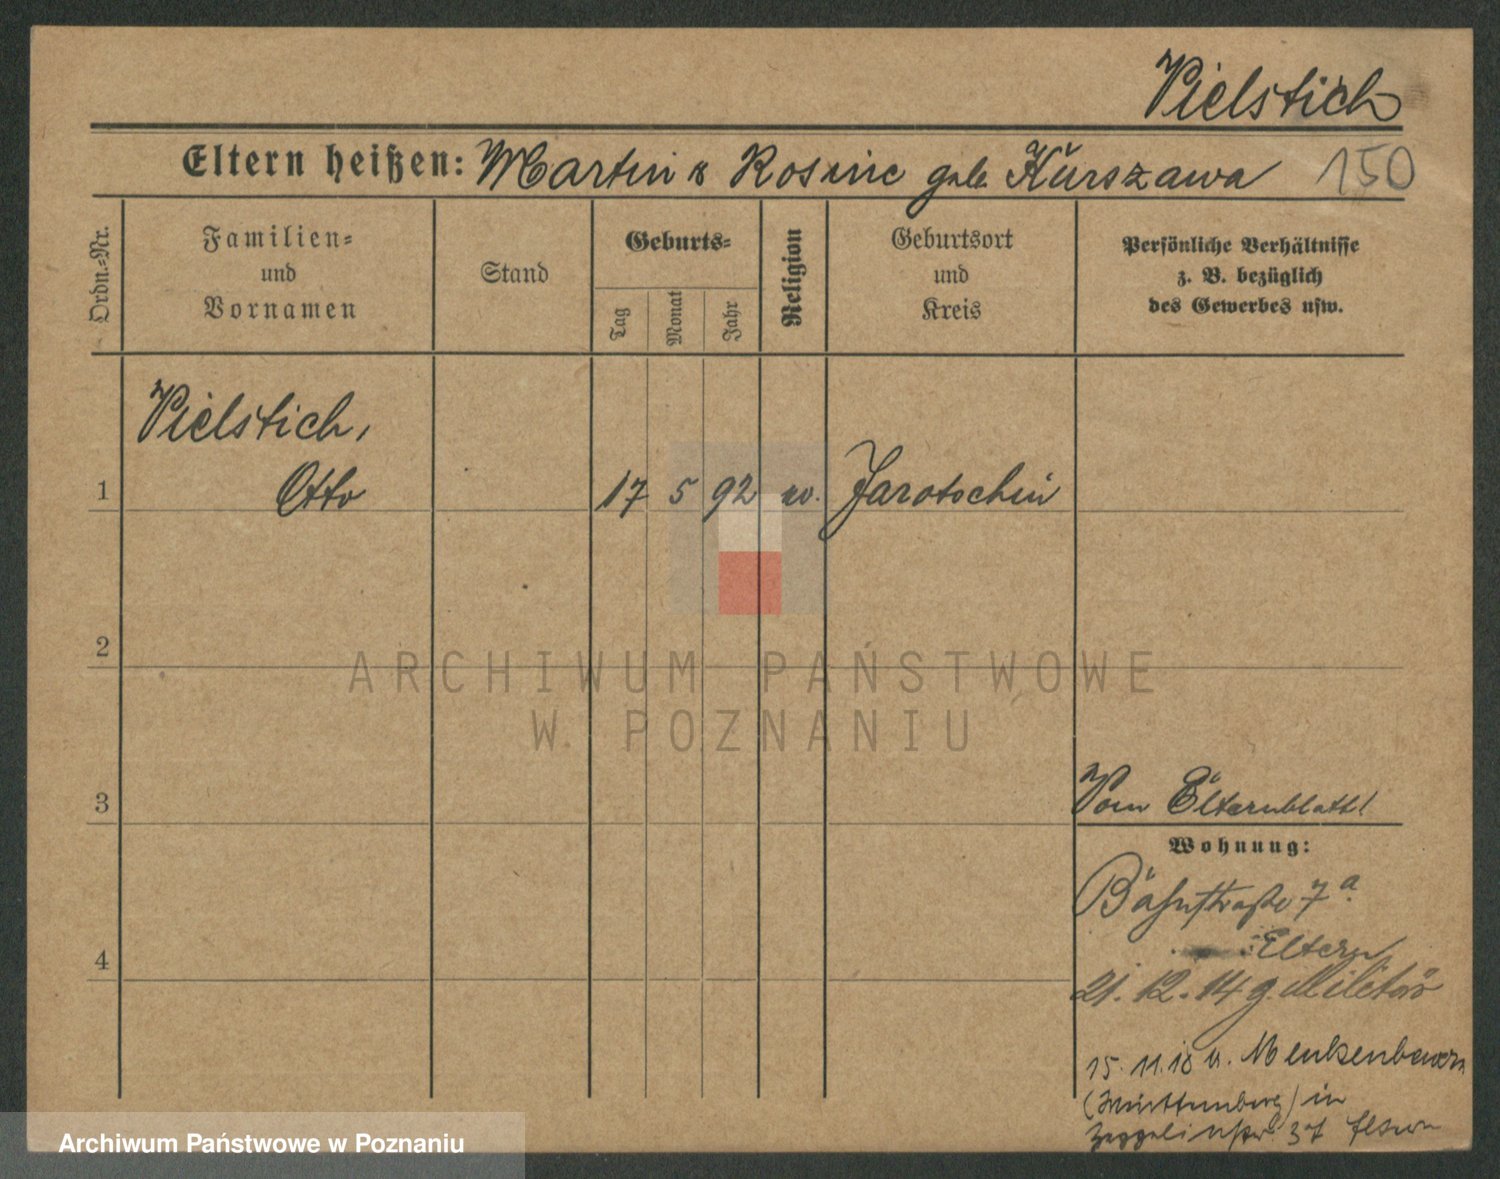 Vielstich
Eltern heißen: Martin & Rosine geb. Kurszawa 150
Ordn.-Nr.
Familien-
und
Vornamen
Stand
Geburts-
Tag
Monat
Jahr
Religion
Geburtsort
und
Kreis
Persönliche Verhältnisse
z. B. bezüglich
des Gewerbes usw.
Vielstich,
1 Otto 17 5 92 ev. Jarotschin
2
ARCHIWUM PAŃSTWOWE
W POZNANIU
3
Vom Elternblatt!
Wohnung:
Bahnstraße 7a
4
Eltern
21.12.14 z. Militär
15.11.18 v.
(Württemberg) in
37 Eltern
Archiwum Państwowe w Poznaniu